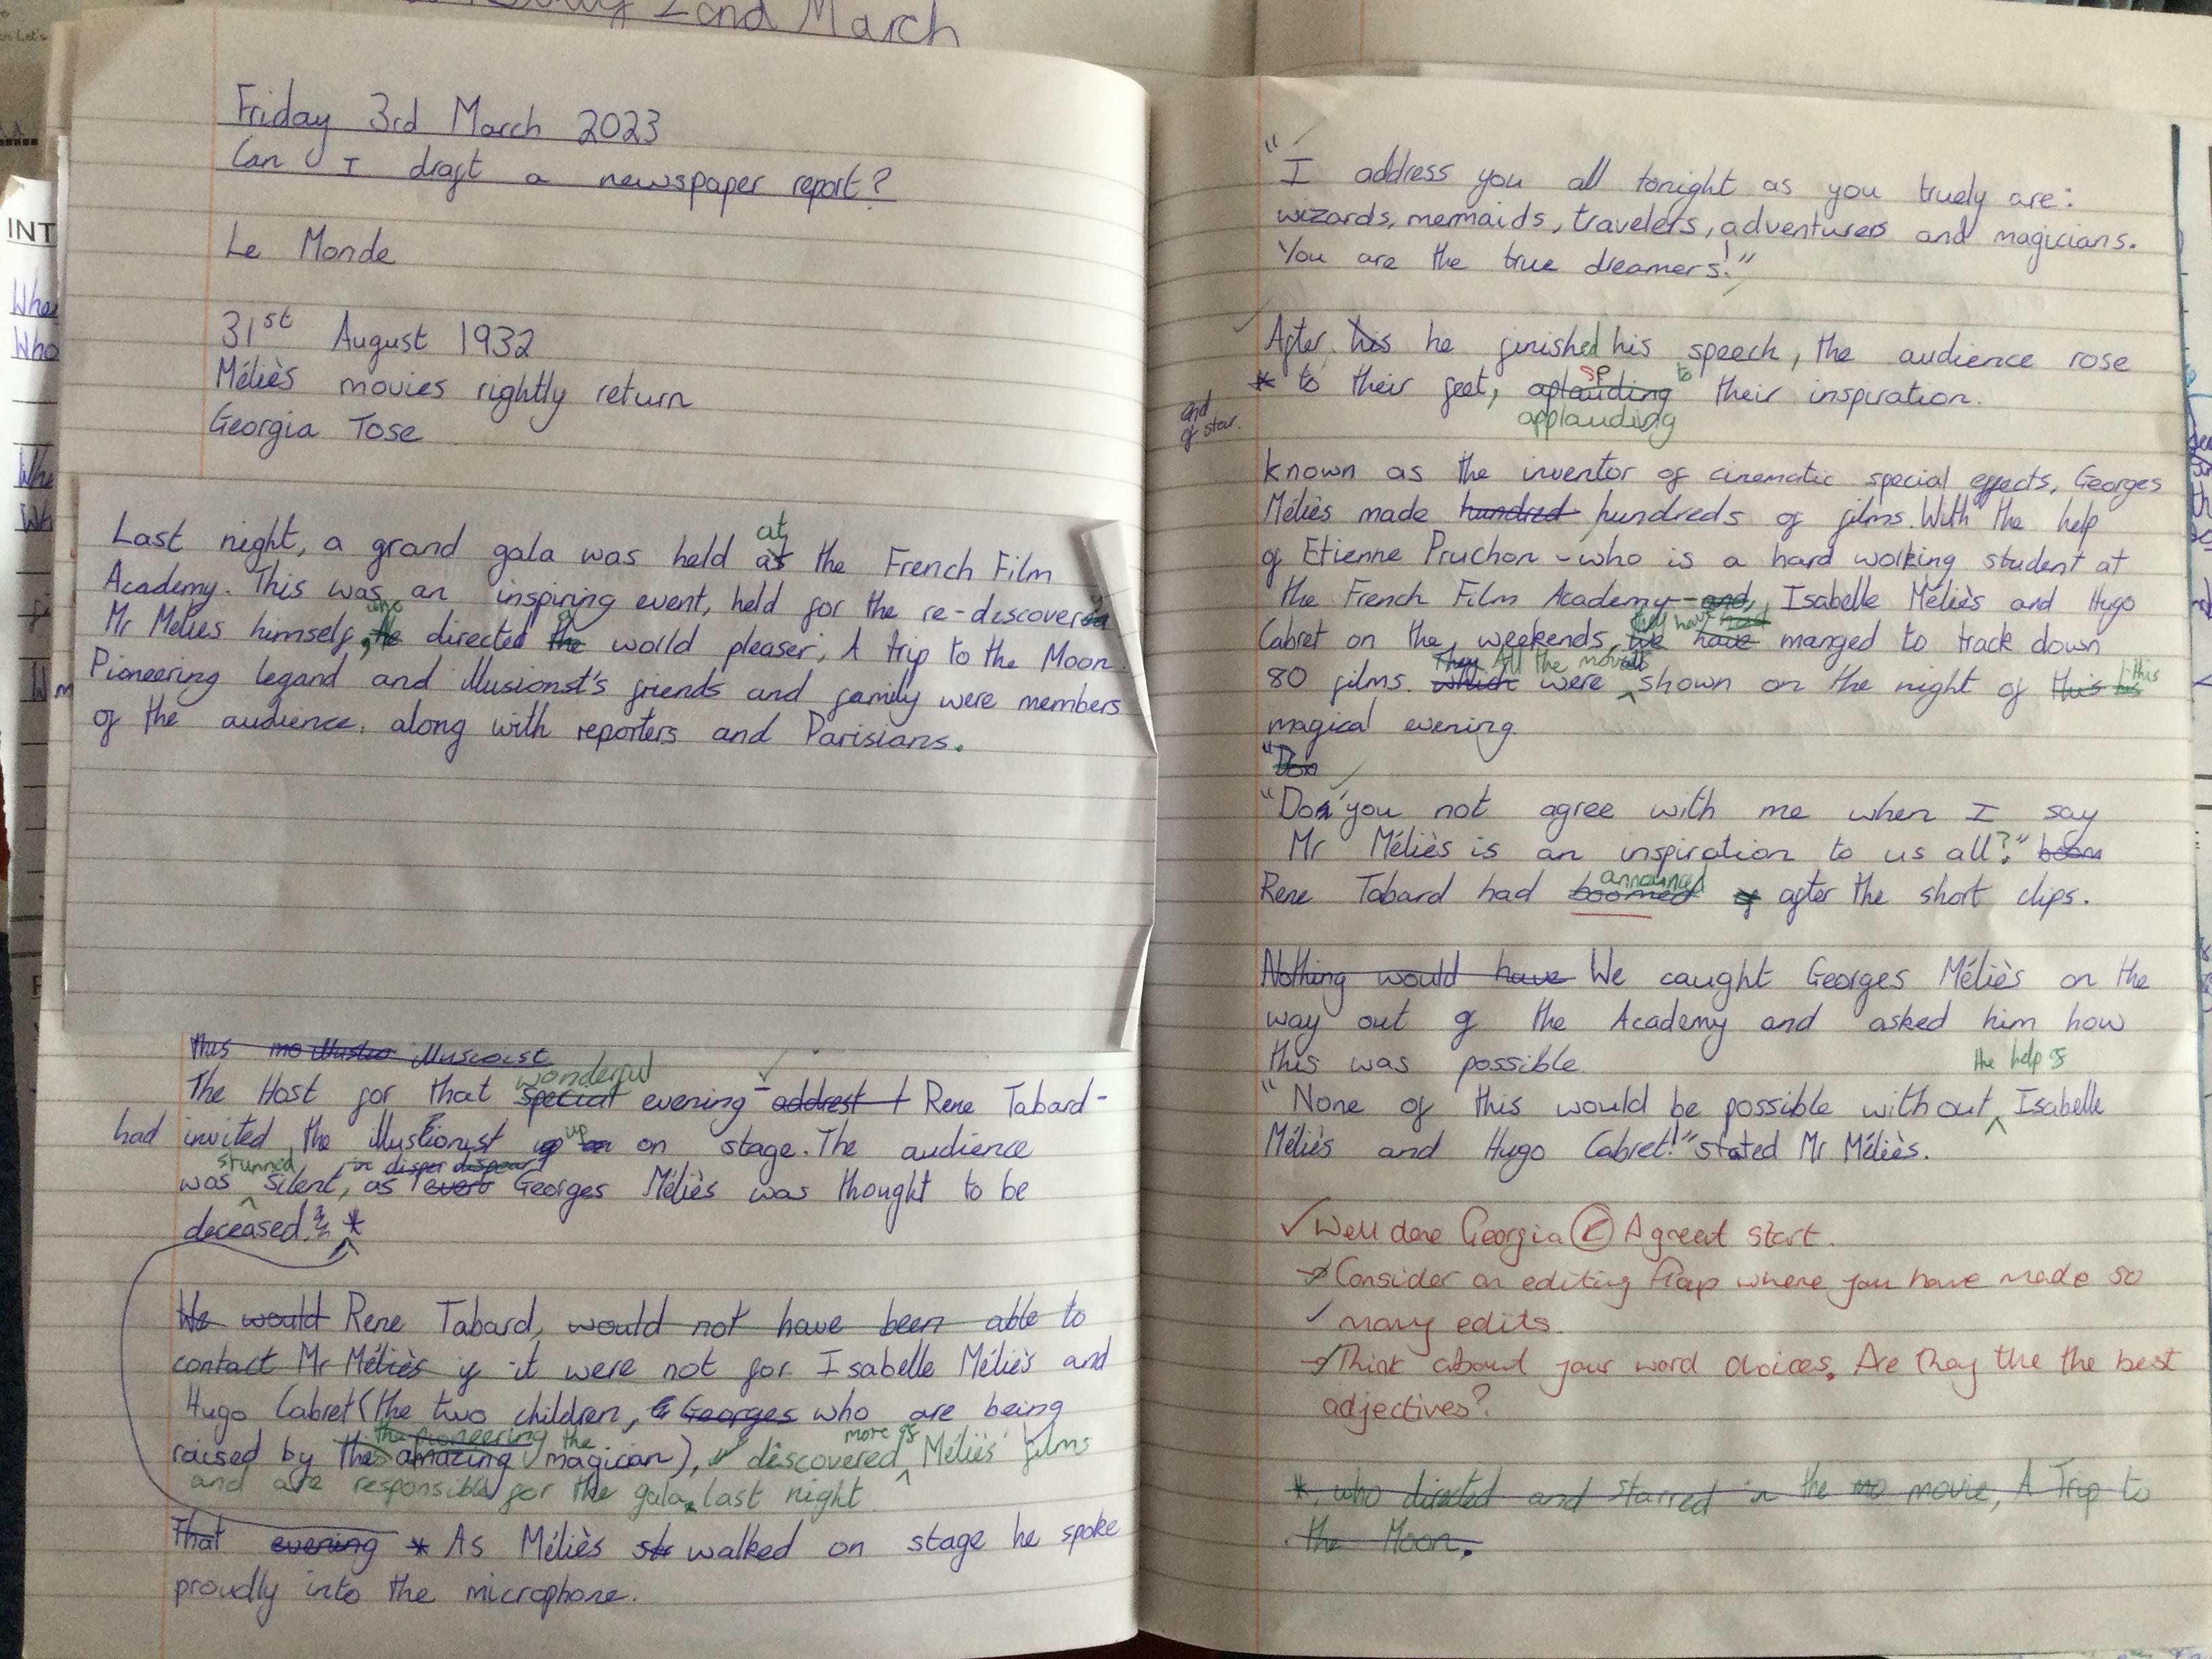 2nd March
Friday 3rd March 2023
Can I draft a newspaper report?
Le Monde
31st August 1932
Méliès movies rightly return
Georgia Tose
at
Last night, a grand gala was held at the French Film
Academy. This was an inspiring event, held for the re-discovered
who a
Mr Melies himself, he directed the world pleaser, A trip to the Moon.
Pioneering legand and illusionst's friends and family were members
of the audience. along with reporters and Parisians.
this mo illustio illusioist
wonderful
The Host for that special evening - addrest + Rene Tabard -
had invited the illustionist up on on stage. The audience
stunned in disper dispear
was silent, as evert Georges Méliès was thought to be
deceased. *
He would Rene Tabard, would not have been able to
contact Mr Méliès if it were not for Isabelle Méliès and
Hugo Cabret (the two children, G Georges who are being
the pioneering the more of
raised by the amazing magician), discovered Méliès' films
and are responsible for the gala last night.
That evening * As Méliès st walked on stage he spoke
proudly into the microphone.
"I address you all tonight as you truely are:
wizards, mermaids, travelers, adventurers and magicians.
You are the true dreamers!"
After his he finished his speech, the audience rose
sp to
* to their feet, aplauding their inspiration.
applauding
end
of star.
known as the inventor of cinematic special effects, Georges
Méliès made hundred hundreds of films. With the help
of Etienne Pruchon - who is a hard working student at
the French Film Academy - and, Isabelle Méliès and Hugo
they have had
Cabret on the, weekends, we have manged to track down
They All the movies
80 films. which were shown on the night of this his this
magical evening.
"Don
"Don you not agree with me when I say
Mr Méliès is an inspiration to us all?" boom
announced
Rene Tabard had boomed of after the short clips.
Nothing would have We caught Georges Méliès on the
way out of the Academy and asked him how
this was possible.
the help of
"None of this would be possible without Isabelle
Méliès and Hugo Cabret!" stated Mr Méliès.
✓ Well done Georgia A great start.
→ Consider an editing flap where you have made so
many edits.
→ Think about your word choices. Are they the the best
adjectives?
*, who directed and starred in the mo movie, A Trip to
the Moon.